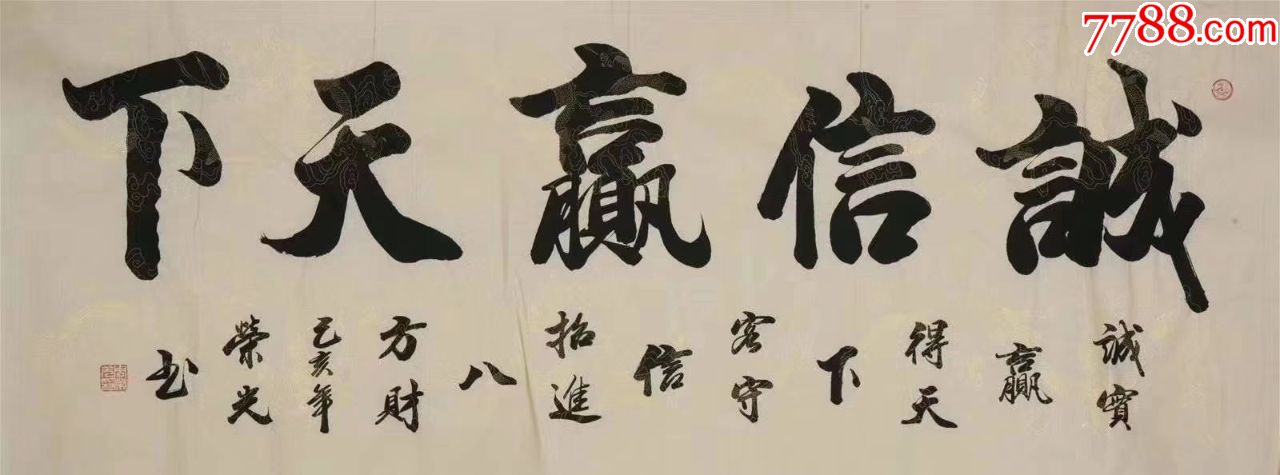 7788.com
誠信贏天下
誠實
贏
得天
下
客守
信
招進
八
方財
己亥年
榮光
书